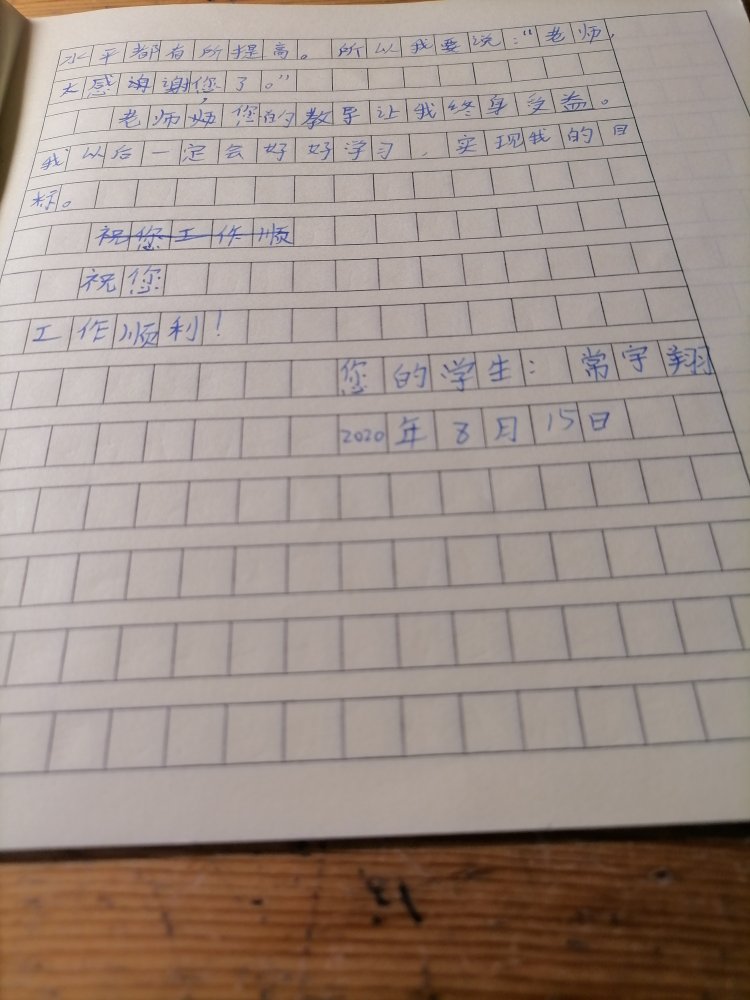 水平都有所提高。所以我要说：“老师，
太感谢您了。”
老师，您的教导让我终身受益。
我以后一定会好好学习，实现我的目
标。
祝您工作顺
祝您
工作顺利！
您的学生：常宇翔
2020年8月15日